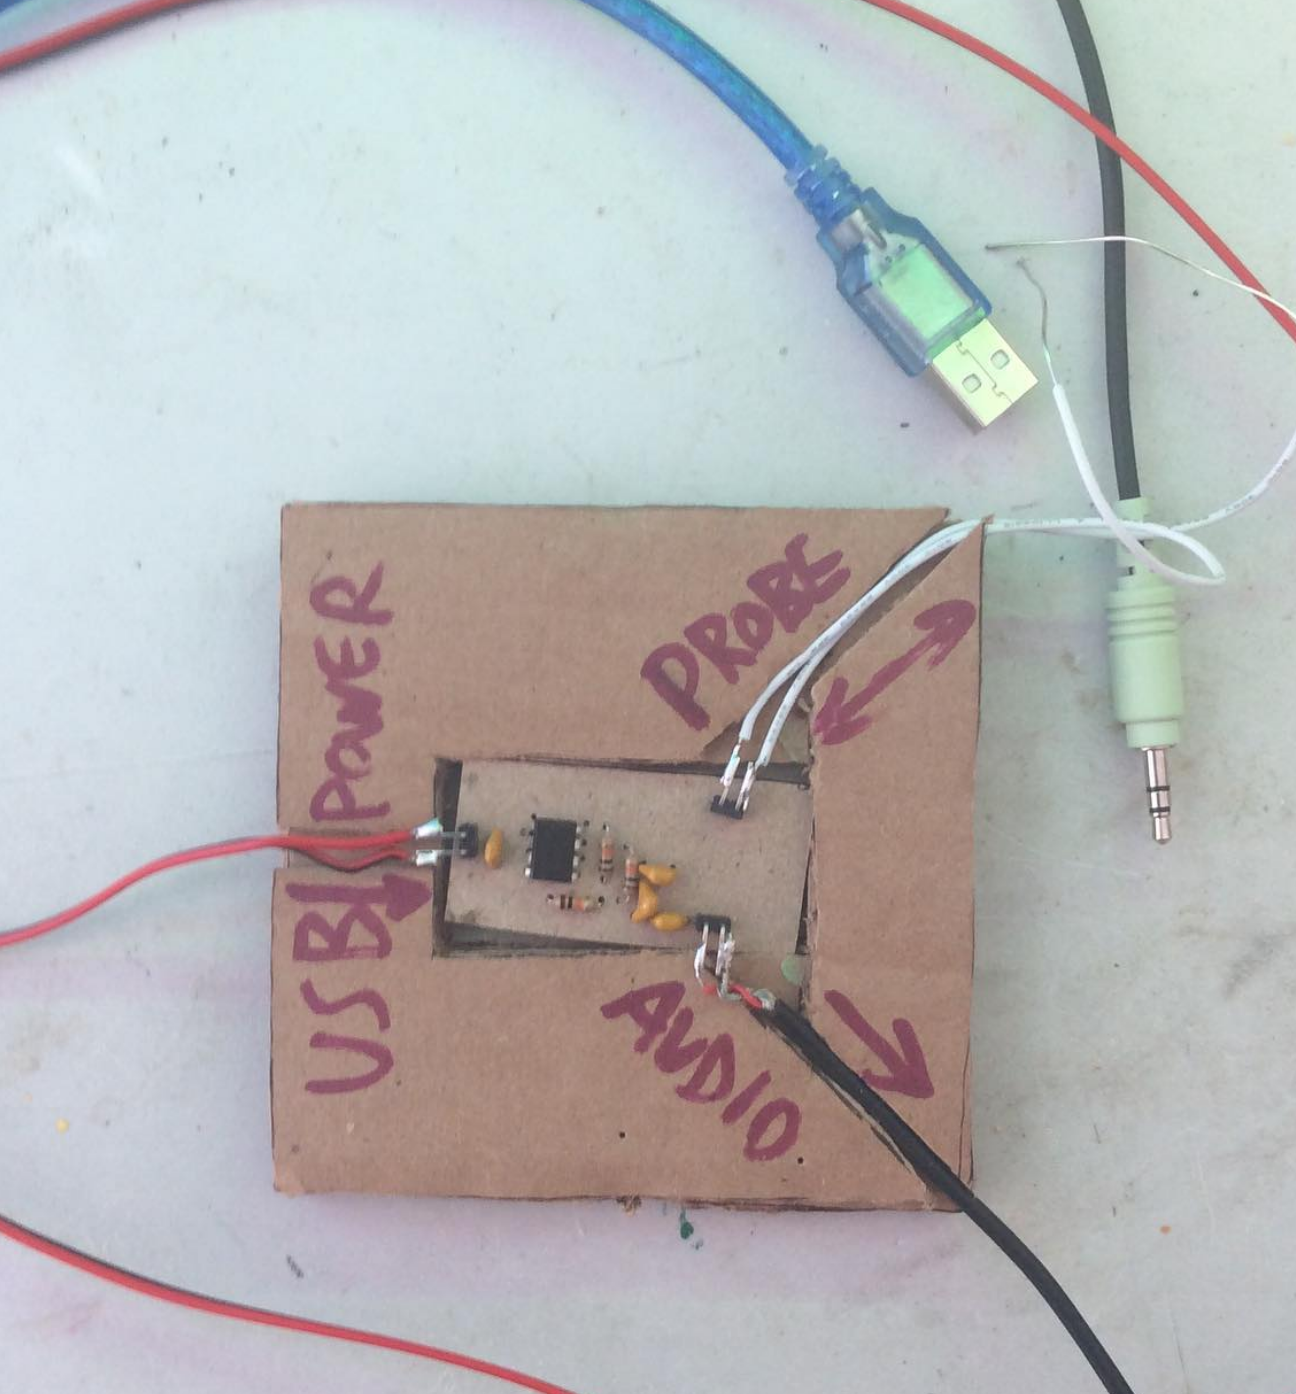 USB POWER
PROBE
AUDIO